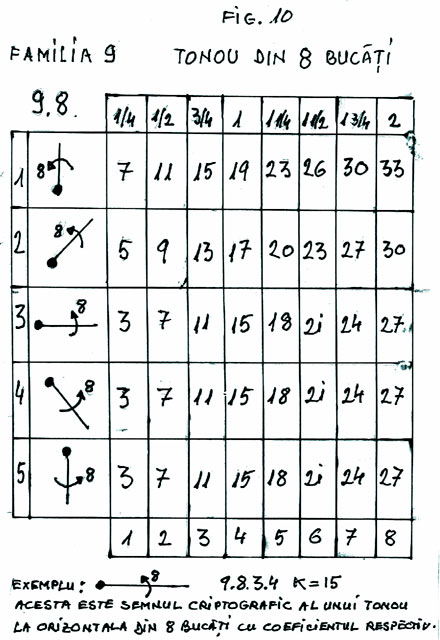 FIG. 10
FAMILIA 9 TONOU DIN 8 BUCĂȚI
9.8. 1/4 1/2 3/4 1 1 1/4 1 1/2 1 3/4 2
1 8 7 11 15 19 23 26 30 33
2 8 5 9 13 17 20 23 27 30
3 8 3 7 11 15 18 21 24 27
4 8 3 7 11 15 18 21 24 27
5 8 3 7 11 15 18 21 24 27
1 2 3 4 5 6 7 8
EXEMPLU: 8 9.8.3.4 K=15
ACESTA ESTE SEMNUL CRIPTOGRAFIC AL UNUI TONOU
LA ORIZONTALA DIN 8 BUCĂȚI CU COEFICIENTUL RESPECTIV.